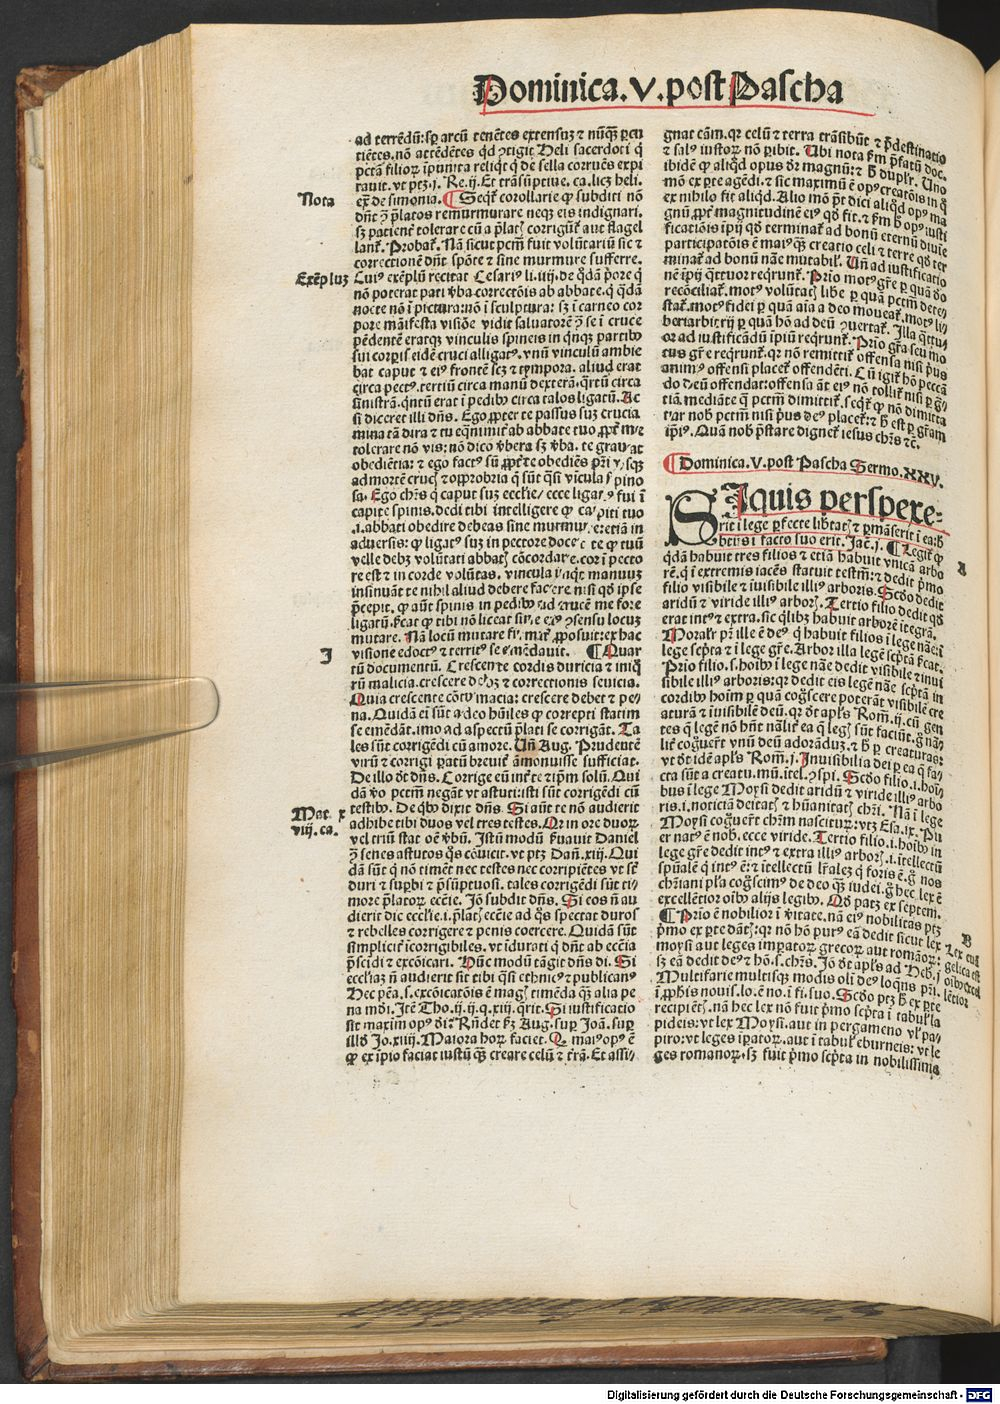 Dominica.V.post Pascha
ad terrēdū: sꝫ arcū tenētes extensuꝫ ⁊ nūqꝫ ꝑcu
tiētes. nō attēdētes qd ꝯtigit Heli sacerdoti q̇
pctā filioꝝ ipunita reliqt q̇ de sella corruēs expi
rauit. vt ptꝫ. j. Re. ij. Et trāsūptiue. ca. licꝫ heli.
Nota
ex̄ de simonia. ¶ Seqr̄ corollarie ꝙ subditi nō
dn̄t ꝯ p̄latos remurmurare neqꝫ eis indignari.
sꝫ patient̄ tolerare cū a p̄latꝭ corrigūt̄ aut flagel
lant̄. Probat̄. Nā sicut pctm̄ fuit volūtariū sic ⁊
correctionē dn̄t spōte ⁊ sine murmure sufferre.
Exēpluꝫ
Cuiꝰ exēplū recitat Cesariꝰ li. iiij. de qdā p̄ore q̇
nō poterat pati v̄ba correctōis ab abbate. q̇ qdā
nocte nō ī pictura: nō ī sculptura: sꝫ ī carneo cor
pore māifesta visiōe vidit saluatorē ꝯ se ī cruce
pēdentē eratqꝫ vinculis spineis in qnqꝫ partibꝰ
sui corꝑis eidē cruci alligatꝰ. vnū vinculū ambie
bat caput ⁊ eiꝰ frontē scꝫ ⁊ tympora. aliud erat
circa pectꝰ. tertiū circa manū dexterā. qrtū circa
sinistrā. qntū erat ī pedibꝰ circa talos ligatū. Ac
si diceret illi dn̄s. Ego ꝓpter te passus suꝫ crucia
mina tā dira ⁊ tu eqnimit̄ ab abbate tuo ꝓpt̄ me
tolerare nō vis: nō dico v̄bera sꝫ v̄ba. te grauat
obediētia: ⁊ ego factꝰ sū ꝓpt̄ te obediēs pr̄i vsqꝫ
ad mortē crucꝭ ⁊ opprobria q̇ sūt qsi vincula spino
sa. Ego chr̄s q̇ caput suꝫ eccl'ie/ ecce ligatꝰ fui ī
capite spinis. dedi tibi intelligere ꝙ capiti tuo
.i. abbati obedire debeas sine murmure: etiā in
aduersis: ꝙ ligatꝰ suꝫ in pectore docet te ꝙ tuū
velle debꝫ volūtati abbatꝭ cōcordare. cor ī pecto
re est ⁊ in corde volūtas. vincula īqt manuuꝫ
insinuāt te nihil aliud debere facere nisi qd ip̄se
p̄cepit. ꝙ aūt spinis in pedibꝰ ad crucē me fore
ligatū. ſcat ꝙ tibi nō liceat sine eiꝰ ꝯsensu locuꝫ
mutare. Nā locū mutare
I
visione edoctꝰ ⁊ territꝰ se emēdauit. ¶ Quar
tū documentū. Crescente cordis duricia ⁊ iniq
rū malicia. crescere debꝫ ⁊ correctionis seuicia.
Quia crescente cōtumacia: crescere debet ⁊ pe/
na. Quidā ei sūt adeo hūiles ꝙ correpti statim
se emēdāt. imo ad aspectū p̄lati se corrigāt. Ta
les sūt corrigēdi cū amore. Uñ Aug. Prudentē
virū ⁊ corrigi ꝑatū breuit̄ āmonuisse sufficiat.
De illo dt dn̄s. Corrige eū int̄ te ⁊ ip̄m solū. Qui
dā v̄o pctm̄ negāt vt astuti: isti sūt corrigēdi cū
testibꝰ. De qbꝰ dixit dn̄s. Si aūt te nō audierit
Mat. x
viij. ca.
adhibe tibi duos vel tres testes. Qr in ore duoꝝ
vel triū stat oē v̄bū. Istū modū ſuauit Daniel
ꝯ senes astutos qs cōuicit. vt ptꝫ Dañ. xiij. Qui
dā sūt q̇ nō timēt nec testes nec corripiētes vt st̄
duri ⁊ suꝑbi ⁊ p̄sūptuosi. tales corrigēdi sūt ti/
more p̄latoꝝ ecc̄ie. Jō subdit dn̄s. Si eos ñ au
dierit dic eccl'ie. i. p̄latꝭ ecc̄ie ad qs spectat duros
⁊ rebelles corrigere ⁊ penis coercere. Quidā sūt
simplicit̄ icorrigibiles. vt īdurati q̇ dn̄t ab ecc̄ia
p̄scidi ⁊ excōicari. Hūc modū tāgit dn̄s di. Si
eccl'iaꝫ ñ audierit sit tibi qsi ethnicꝰ ⁊ publicanꝰ
Hec pēa. s. excōicatōis ē magꝭ timēda qꝫ alia pe
na mōi. Itē Tho. ij. ij. q. xiij. qrit. Si iustificatio
sit maximū opꝰ di? Rn̄det ẜꝫ Aug. suꝑ Joā. suꝑ
illd Jo. xiiij. Maiora hoꝝ faciet. Q maiꝰ opꝰ ē
ꝙ ex īpio faciat iustū qꝫ creare celū ⁊ tr̄ā. Et assi/
gnat cām. qr celū ⁊ terra trāsibūt ⁊ p̄destinatio
⁊ salꝰ iustoꝝ nō ꝑibit. Ubi nota ẜm p̄fatū doc.
ibidē ꝙ aliqd opus dr̄ magnū: ⁊ h̄ dupl'r. Uno
mō ex ꝑte agēdi. ⁊ sic maximū ē opꝰ creatōis in q̇
ex nihilo fit aliqd. Alio mō pt̄ dici aliqd opꝰ ma
gnū ꝓpt̄ magnitudinē eiꝰ qd fit. ⁊ ẜm h̄ opꝰ iusti
ficatiōis ip̄ij qd terminat̄ ad bonū eternū diuie
participatōis ē maiꝰ qꝫ creatio celi ⁊ terre qd ter
minat̄ ad bonū nāe mutabil'. Uñ ad iustificatio
nē īpij qttuor reqrunt̄. Prio motꝰ gr̄e ꝑ quā do
recōciliat̄. motꝰ volūtatꝭ libe ꝑ quā pctm̄ dete/
stat̄. motꝰ fidei ꝑ quā aīa a deo moueat̄. motꝰ li/
beri arbitrij ꝑ quā hō ad deū ꝯuertat̄. Illa qttu/
or ad iustificādū īpiū reqrunt̄. Prio gr̄a seu mo
tus gr̄e reqrunt̄. qr nō remittit̄ offensa nisi p̄us
animꝰ offensi placet̄ offendēti. Cū igit̄ hō peccā
do deū offendat: offensa āt eiꝰ nō tollit̄ nisi ꝑ gr̄
tiā. mediāte q̇ pctm̄ dimittit̄. seqt̄ ꝙ nō dimitta
tur nob̄ pctm̄ nisi p̄us deꝰ placet̄: ⁊ h̄ est ꝑ gr̄am
ip̄iꝰ. Quā nob̄ p̄stare dignet̄ iesus chr̄s ⁊c̄.
¶ Dominica. V. post Pascha Sermo. XXV.
SIquis perspexe-
rit ī lege ꝑfecte lib̄tatꝭ ⁊ ꝑmāserit ī ea: h̄
btūs ī facto suo erit. Jac̄. j. ¶ Legit̄ ꝙ
A
qdā habuit tres filios ⁊ etiā habuit vnicā arbo
rē. q̇ ī extremis iacēs statuit testm̄: ⁊ dedit p̄mo
filio visibile ⁊ iuisibile illiꝰ arboris. Scdo dedit
aridū ⁊ viride illiꝰ arborꝭ. Tertio filio dedit qd
erat intꝰ ⁊ extra. sic qlibꝫ habuit arborē itegrā.
Moral'r pr̄ ille ē deꝰ q̇ habuit filios ī lege nāe: ī
lege sc̄pta ⁊ ī lege gr̄e. Arbor illa legē sc̄ptā ſcat.
Prio filio. s. hoībꝰ ī lege nāe dedit visibile ⁊ inui
sibile illiꝰ arboris: qr dedit eis legē nāe sc̄ptā in
cordibꝰ hoīm ꝑ quā cogscere poterāt visibilē cre
aturā ⁊ iuisibilē deū. qr dt apl's Rom̄. ij. cū gen
tes q̇ legē nō hn̄t nālit̄ ea q̇ legꝭ sūt faciūt. g̊ nā/
lit̄ cōguer̄t vnū deū adorāduꝫ. ⁊ h̄ ꝑ creaturas:
vt dt idē apl's Rom̄. j. Inuisibilia dei ꝑ ea q̇ fa/
cta sūt a creatu. mū. itel. ꝯspi. Scdo filio. i. hoī/
bus ī lege Moysi dedit aridū ⁊ viride illiꝰ arbo
ris. i. noticiā deitatꝭ ⁊ hūanitatꝭ chr̄i. Nā ī lege
Moysi coguer̄t chr̄m nascitur: vtꝫ Esa. ix. Pu
er natꝰ ē nob̄. ecce viride. Tertio filio. i. hoībꝰ in
lege gr̄e dedit intꝰ ⁊ extra illiꝰ arborꝭ. i. itellectū
spūalē q̇ intꝰ ē: ⁊ itellectū lr̄alē q̇ foris ē. g̊ nos
chr̄iani pl'a cogscimꝰ de deo qꝫ iudei. g̊ hec lex ē
excellētior oībꝰ alijs legibꝰ. Qd patꝫ ex septem.
¶ Prio ē nobilior ī v̄itate. nā eiꝰ nobilitas ptꝫ
B
Lex euā
gelica est
oībꝰ excel
lētior
p̄mo ex ꝑte dātꝭ: qr nō hō purꝰ eā dedit sicut lex
moysi aut leges imꝑatoꝝ grecoꝝ aut romāoꝝ:
sꝫ eā dedit deꝰ ⁊ hō. s. chr̄s. Jō dt apl's ad Heb. j
Multifarie multisqꝫ modis olī deꝰ loqns pr̄i.
ī ꝓphis nouis. lo. ē no. ī fi. suo. Scdo ptꝫ h̄ ex ꝑte
recipiētꝭ. nā hec lex nō fuit p̄mo sc̄pta ī tabul' la
pideis: vt lex Moysi. aut in pergameno vl' pa/
piro: vt leges iꝑatoꝝ. aut ī tabul' eburneis: vt le
ges romanoꝝ. sꝫ fuit p̄mo sc̄pta in nobilissimis
Digitalisierung gefördert durch die Deutsche Forschungsgemeinschaft - DFG